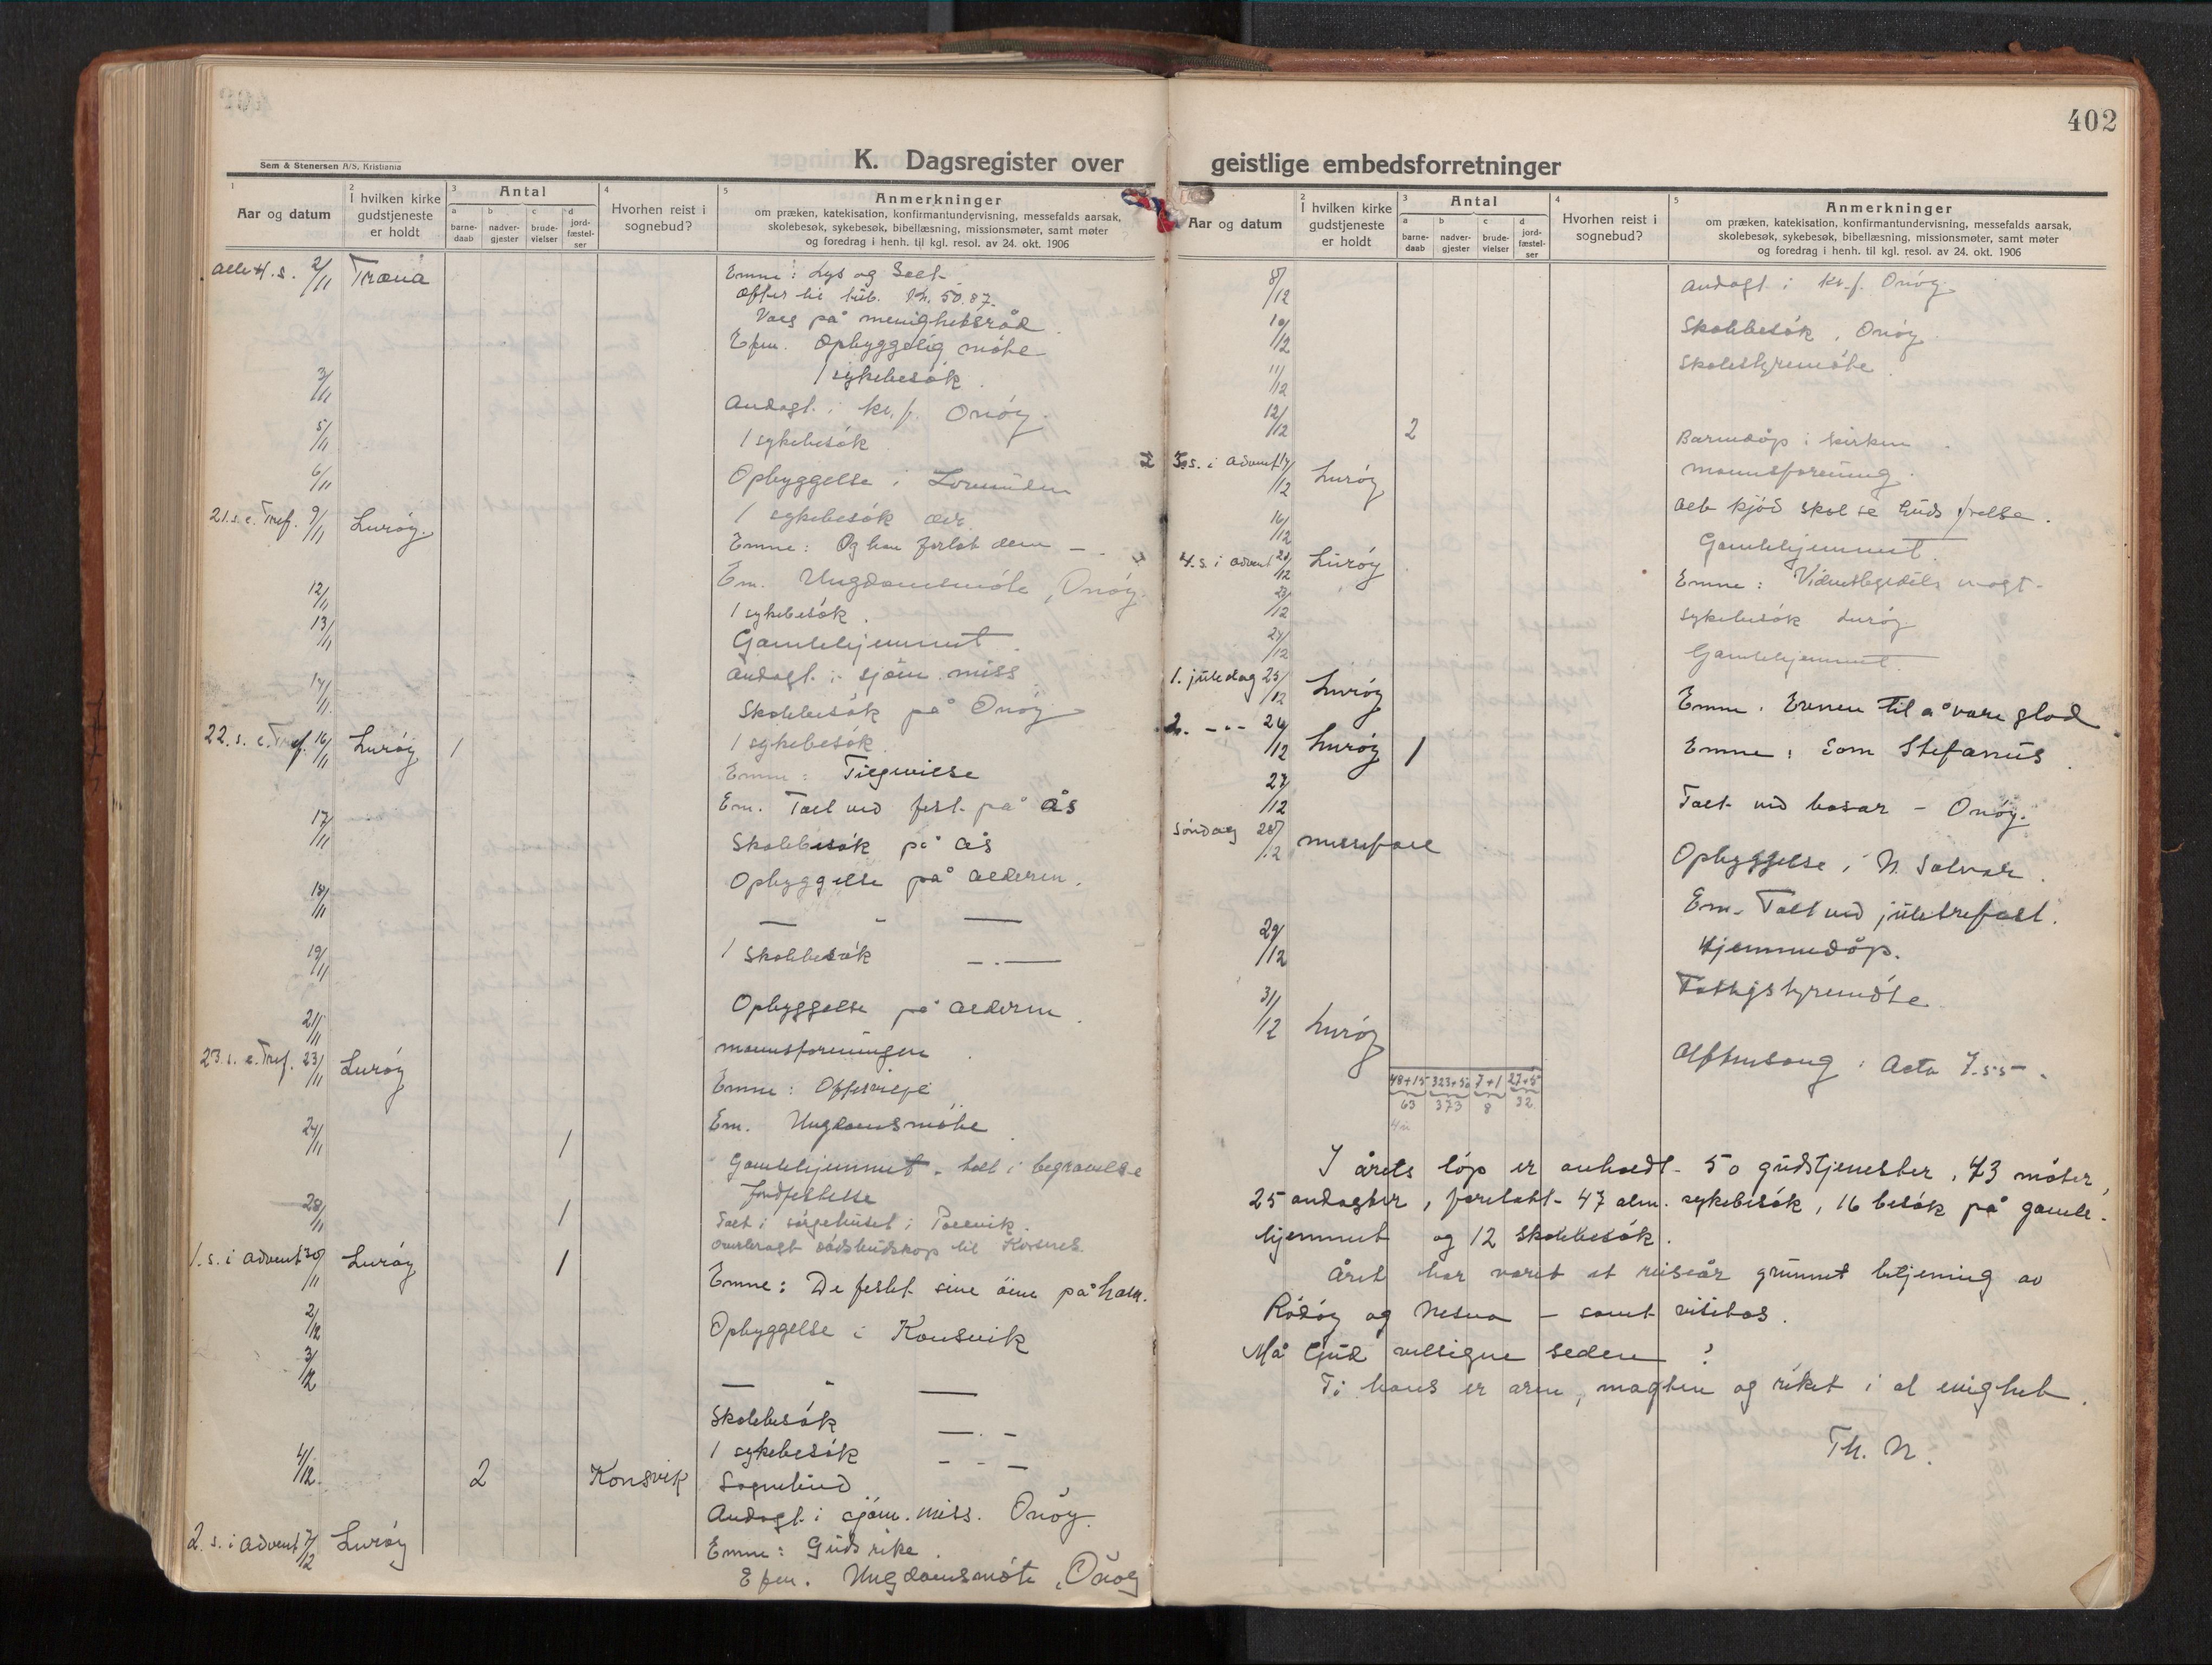 402
Sem & Stenersen A/S, Kristiania
K. Dagsregister over
geistlige embedsforretninger
1
Aar og datum
2
I hvilken kirke
gudstjeneste
er holdt
3
Antal
a
barne-
daab
b
nadver-
gjester
c
brude-
vielser
d
jord-
fæstel-
ser
4
Hvorhen reist i
sognebud?
5
Anmerkninger
om præken, katekisation, konfirmantundervisning, messefalds aarsak,
skolebesøk, sykebesøk, bibellæsning, missionsmøter, samt møter
og foredrag i henh. til kgl. resol. av 24. okt. 1906
Alle H. s. 2/11 Træna
Emne: Lys og Salt
Valg på menighetsråd
Efm. Opbyggelig møte
1 sykebesøk.
3/11
Andagt i kv.f. Onøy.
5/11
1 sykebesøk
6/11
Opbyggelse i Lovunden
1 sykebesøk der.
21. s. e. Tref. 9/11 Lurøy.
Emne: Og han forlot dem -
Em. Ungdomsmøte, Onøy
12/11
1 sykebesøk.
13/11
Gamlehjemmet.
Andagt i sjøm. miss
14/11
Skolebesøk på Onøy
1 sykebesøk.
22. s. e. Tref. 16/11 Lurøy 1
Emne: Tilgivelse
Em. Talt ved fest på Ås
17/11
Skolebesøk på Ås
Opbyggelse på Aldersn.
18/11
— " —
1 Skolebesøk — . —
19/11
Opbyggelse på Aldersn.
21/11
mannsforeningen.
23. s. e. Tref. 23/11 Lurøy
Emne: Offervilje
Em. Ungdomsmøte.
24/11 1
Gamlehjemmet. talt i begravelse
Jordfestelse
28/11 1
Talt i sørgehuset i
Overbragt dødsbudskap til
1. s. i advent 30/11 Lurøy 1
Emne: De festet sine øine på ham.
2/12
Opbyggelse i Konsvik
3/12
— " —
Skolebesøk — . -
1 sykebesøk - - —
4/12 2 Konsvik Sognebud
Andagt i sjøm. miss. Onøy.
2. s. i advent 7/12 Lurøy
Emne: Guds rike.
Efm. Ungdomsmøte, Onøy
1
Aar og datum
2
I hvilken kirke
gudstjeneste
er holdt
3
Antal
a
barne-
daab
b
nadver-
gjester
c
brude-
vielser
d
jord-
fæstel-
ser
4
Hvorhen reist i
sognebud?
5
Anmerkninger
om præken, katekisation, konfirmantundervisning, messefalds aarsak,
skolebesøk, sykebesøk, bibellæsning, missionsmøter, samt møter
og foredrag i henh. til kgl. resol. av 24. okt. 1906
8/12 Andagt i kv.f. Onøy.
10/12 Skolebesøk, Onøy.
11/12 Skolestyremøte.
12/12 2 Barnedøp i kirken.
mannsforening.
3. s. i advent 14/12 Lurøy
Alt kjød skal se Guds frelse.
16/12 Gamlehjemmet.
4. s. i advent 21/12 Lurøy
Emne: Vidnesbyrdets magt.
23/12 Sykebesøk Lurøy
24/12 Gamlehjemmet.
1. juledag 25/12 Lurøy
Emne. Evnen til å være glad
2. - - - 26/12 Lurøy 1
Emne: Som Stefanus.
27/12 Talt ved basar - Onøy.
Søndag 28/12 messefall
Opbyggelse i N. Solvær.
Em. Talt ved juletrefest.
29/12 Hjemmedøp.
Fattigstyremøte.
31/12 Lurøy
Aftensang: Acta 7.55-.
48+15 323+50 7+1 27+5
63 373 8 32
I årets løp er anholdt 50 gudstjenester, 73 møter,
25 andagter, foretatt 47 alm. sykebesøk, 16 besøk på gamle-
hjemmet og 12 skolebesøk.
Året har været et reiseår grunnet betjening av
Rødøy og Nesna - samt visitas.
Må Gud velsigne seden!
Ti hans er æren, magten og riket i al evighet.
Th. N.